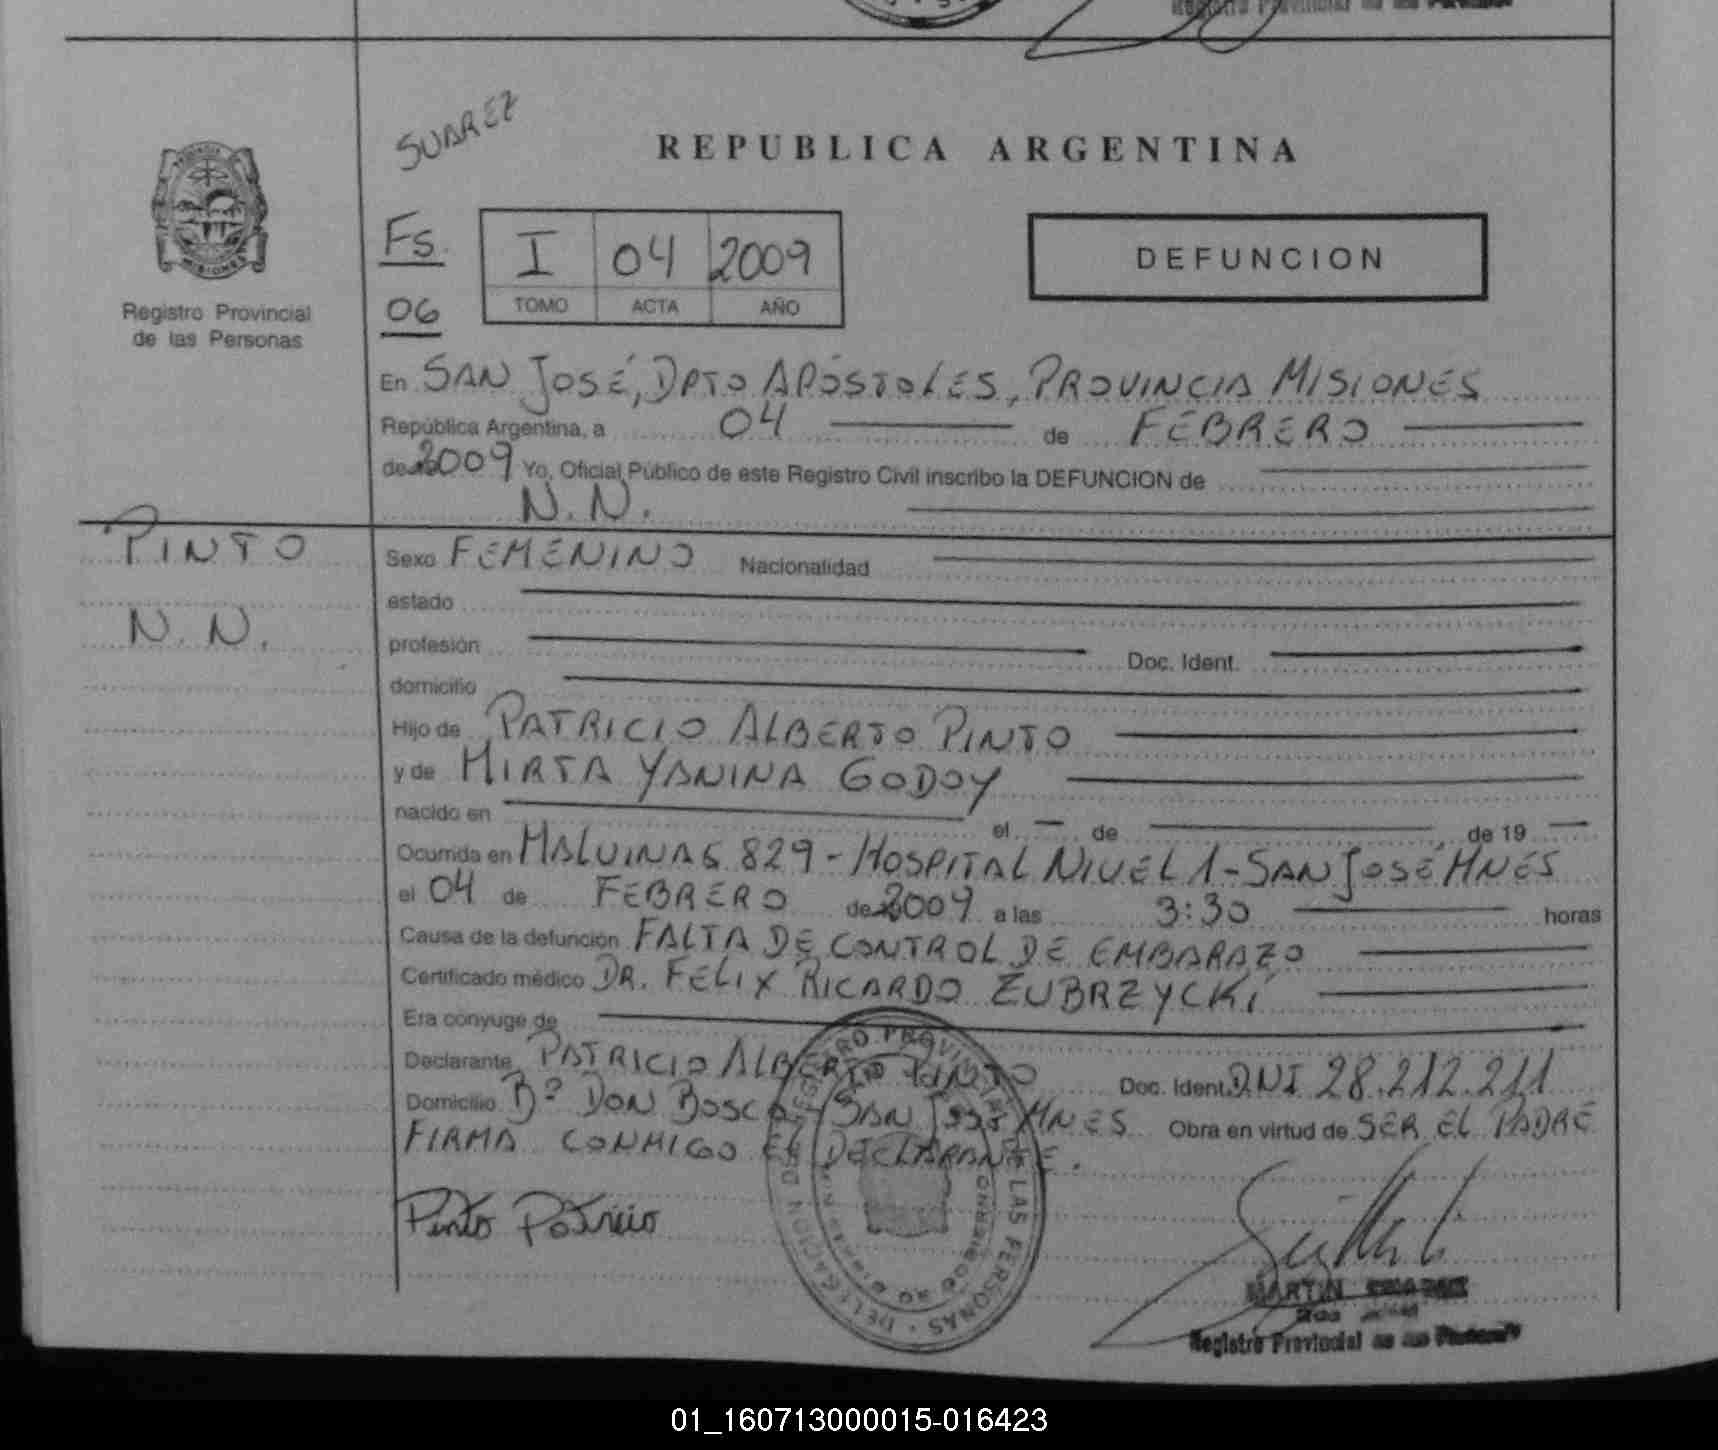 SUAREZ
REPUBLICA ARGENTINA
MISIONES
Registro Provincial
de las Personas
Fs.
06
I 04 2009
TOMO ACTA AÑO
DEFUNCION
En SAN JOSÉ, DPTO APÓSTOLES, PROVINCIA MISIONES
República Argentina, a 04 de FEBRERO
de 2009 Yo, Oficial Público de este Registro Civil inscribo la DEFUNCION de
N.N.
PINTO
N.N.
Sexo FEMENINO Nacionalidad
estado
profesión Doc. Ident.
domicilio
Hijo de PATRICIO ALBERTO PINTO
y de MIRTA YANINA GODOY
nacido en el de de 19
Ocurrida en MALVINAS 829 - HOSPITAL NIVEL 1 - SAN JOSÉ, MNES
el 04 de FEBRERO de 2009 a las 3:30 horas
Causa de la defunción FALTA DE CONTROL DE EMBARAZO
Certificado médico DR. FELIX RICARDO ZUBRZYCKI
Era conyuge de
Declarante PATRICIO ALBERTO PINTO Doc. Ident. DNI 28.212.211
Domicilio Bº DON BOSCO, SAN JOSÉ MNES Obra en virtud de SER EL PADRE
FIRMA CONMIGO EL DECLARANTE.
Pinto Patricio
MARTIN
Registro Provincial de las Personas
01_160713000015-016423